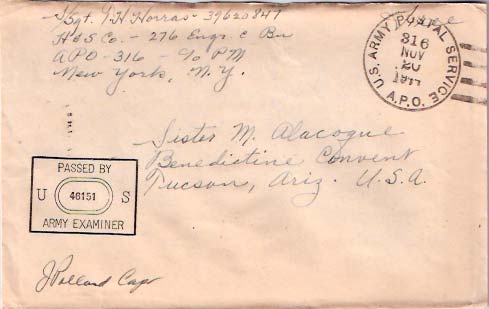 T/Sgt. Y H Horras - 39620847
H&S Co. - 276 Engr. C Bn
APO - 316 - % PM
New York, N.Y.
Free
U.S. ARMY POSTAL SERVICE
316
NOV
20
1944
A.P.O.
Sister M. Alacoque
Benedictine Convent
Tucson, Ariz. U.S.A.
PASSED BY
U 46151 S
ARMY EXAMINER
J Pollard Capt